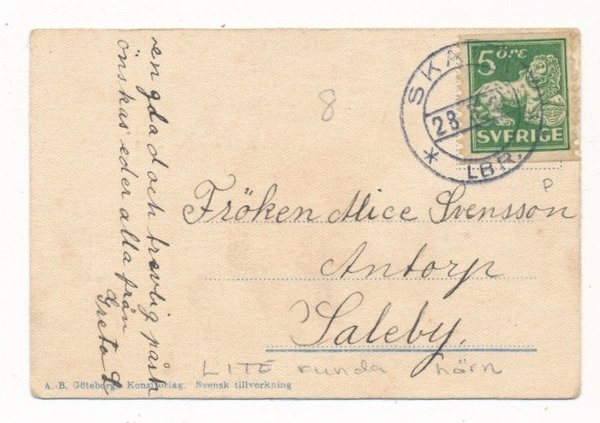 en glad och trevlig påsk
önskas eder alla från
Greta L
8
5 ÖRE
SVERIGE
28
LBR.
P
Fröken Alice Svensson
Antorp
Saleby.
LITE runda hörn
A.-B. Göteborgs Konstförlag. Svensk tillverkning